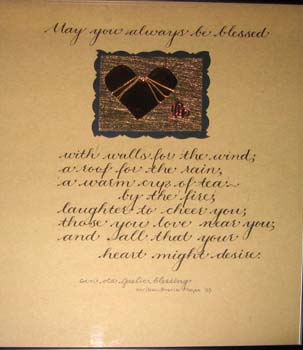 May you always be blessed
with walls for the wind;
a roof for the rain;
a warm cup of tea
by the fire;
laughter to cheer you;
those you love near you;
and all that your
heart might desire.
an old Gaelic blessing